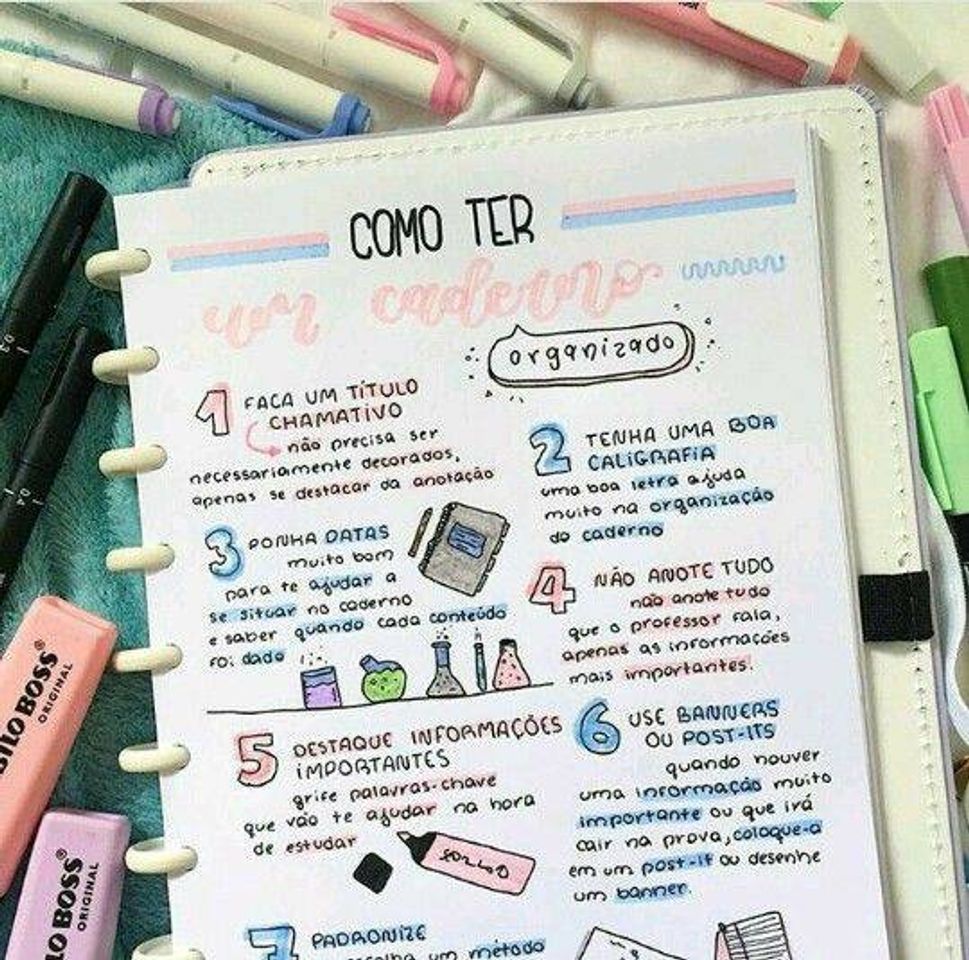 COMO TER
um caderno
organizado
1 FAÇA UM TÍTULO
CHAMATIVO
não precisa ser
necessariamente decorados,
apenas se destacar da anotação
2 TENHA UMA BOA
CALIGRAFIA
uma boa letra ajuda
muito na organização
do caderno
3 PONHA DATAS
muito bom
para te ajudar a
se situar no caderno
e saber quando cada conteúdo
foi dado
4 NÃO ANOTE TUDO
não anote tudo
que o professor fala,
apenas as informações
mais importantes.
5 DESTAQUE INFORMAÇÕES
IMPORTANTES
grife palavras-chave
que vão te ajudar na hora
de estudar
6 USE BANNERS
OU POST-ITS
quando houver
uma informação muito
importante ou que irá
cair na prova, coloque-a
em um post-it ou desenhe
um banner.
7 PADRONIZE
escolha um método
BOSS®
ORIGINAL
BOSS®
ORIGINAL